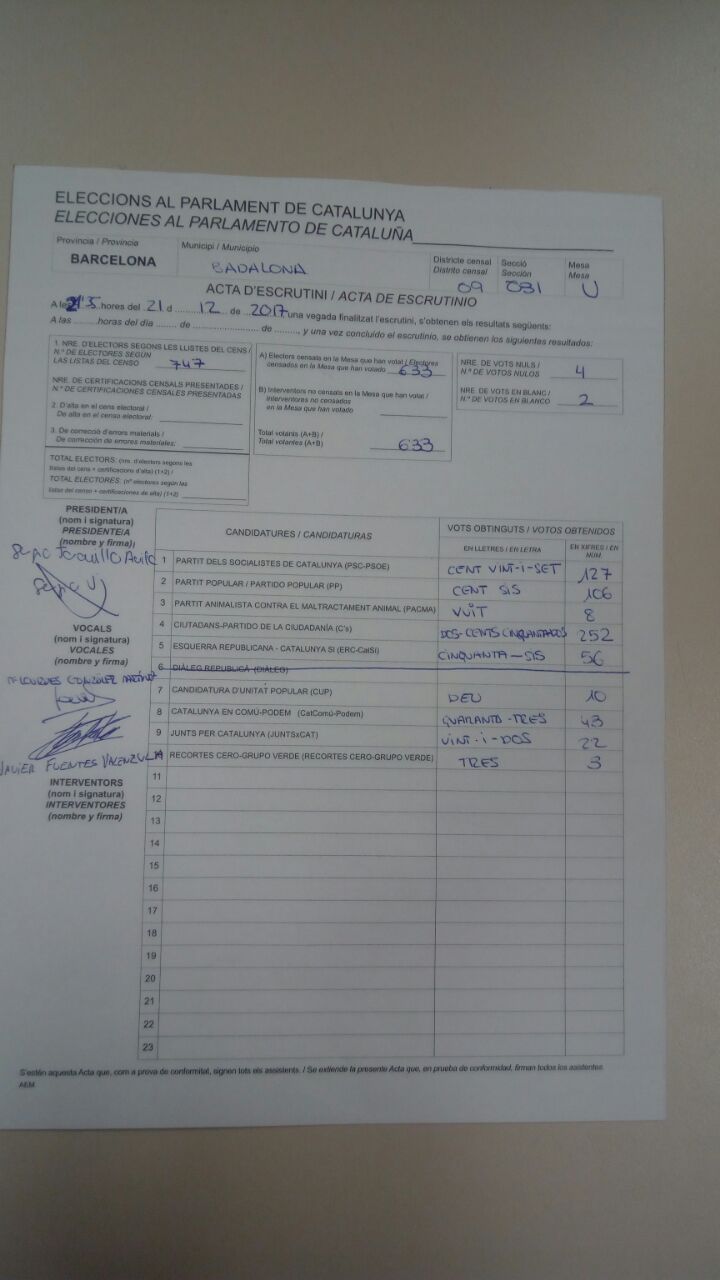 ELECCIONS AL PARLAMENT DE CATALUNYA
ELECCIONES AL PARLAMENTO DE CATALUÑA
Província / Provincia
BARCELONA
Municipi / Municipio
BADALONA
Districte censal
Distrito censal
09
Secció
Sección
031
Mesa
Mesa
U
ACTA D'ESCRUTINI / ACTA DE ESCRUTINIO
A les hores del 21 d 12 de 2017 una vegada finalitzat l'escrutini, s'obtenen els resultats següents:
A las ......... horas del día ....... de ............................ de ........, y una vez concluido el escrutinio, se obtienen los siguientes resultados:
1. NRE. D'ELECTORS SEGONS LES LLISTES DEL CENS /
N.º DE ELECTORES SEGÚN
LAS LISTAS DEL CENSO 747
NRE. DE CERTIFICACIONS CENSALS PRESENTADES /
N.º DE CERTIFICACIONES CENSALES PRESENTADAS
2. D'alta en el cens electoral /
De alta en el censo electoral:
3. De correcció d'errors materials /
De corrección de errores materiales:
TOTAL ELECTORS: (nre. d'electors segons les
llistes del cens + certificacions d'alta) (1+2) /
TOTAL ELECTORES: (nº electores según las
listas del censo + certificaciones de alta) (1+2)
A) Electors censats en la Mesa que han votat / Electores
censados en la Mesa que han votado 633
B) Interventors no censats en la Mesa que han votat /
Interventores no censados
en la Mesa que han votado
Total votants (A+B) /
Total votantes (A+B) 633
NRE. DE VOTS NULS /
N.º DE VOTOS NULOS 4
NRE. DE VOTS EN BLANC /
N.º DE VOTOS EN BLANCO 2
PRESIDENT/A
(nom i signatura)
PRESIDENTE/A
(nombre y firma)
VOCALS
(nom i signatura)
VOCALES
(nombre y firma)
Mª LOURDES GONZÁLEZ MARTÍNEZ
JAVIER FUENTES VALENZUELA
INTERVENTORS
(nom i signatura)
INTERVENTORES
(nombre y firma)
CANDIDATURES / CANDIDATURAS
VOTS OBTINGUTS / VOTOS OBTENIDOS
EN LLETRES / EN LETRA
EN XIFRES / EN NÚM
1 PARTIT DELS SOCIALISTES DE CATALUNYA (PSC-PSOE) CENT VINT-I-SET 127
2 PARTIT POPULAR / PARTIDO POPULAR (PP) CENT SIS 106
3 PARTIT ANIMALISTA CONTRA EL MALTRACTAMENT ANIMAL (PACMA) VUIT 8
4 CIUTADANS-PARTIDO DE LA CIUDADANÍA (C's) DOS-CENTS CINQUANTADOS 252
5 ESQUERRA REPUBLICANA - CATALUNYA SI (ERC-CatSí) CINQUANTA-SIS 56
6 DIÀLEG REPUBLICÀ (DIÀLEG)
7 CANDIDATURA D'UNITAT POPULAR (CUP) DEU 10
8 CATALUNYA EN COMÚ-PODEM (CatComú-Podem) QUARANTA-TRES 43
9 JUNTS PER CATALUNYA (JUNTSxCAT) VINT-I-DOS 22
10 RECORTES CERO-GRUPO VERDE (RECORTES CERO-GRUPO VERDE) TRES 3
11
12
13
14
15
16
17
18
19
20
21
22
23
S'estén aquesta Acta que, com a prova de conformitat, signen tots els assistents. / Se extiende la presente Acta que, en prueba de conformidad, firman todos los asistentes.
AEM